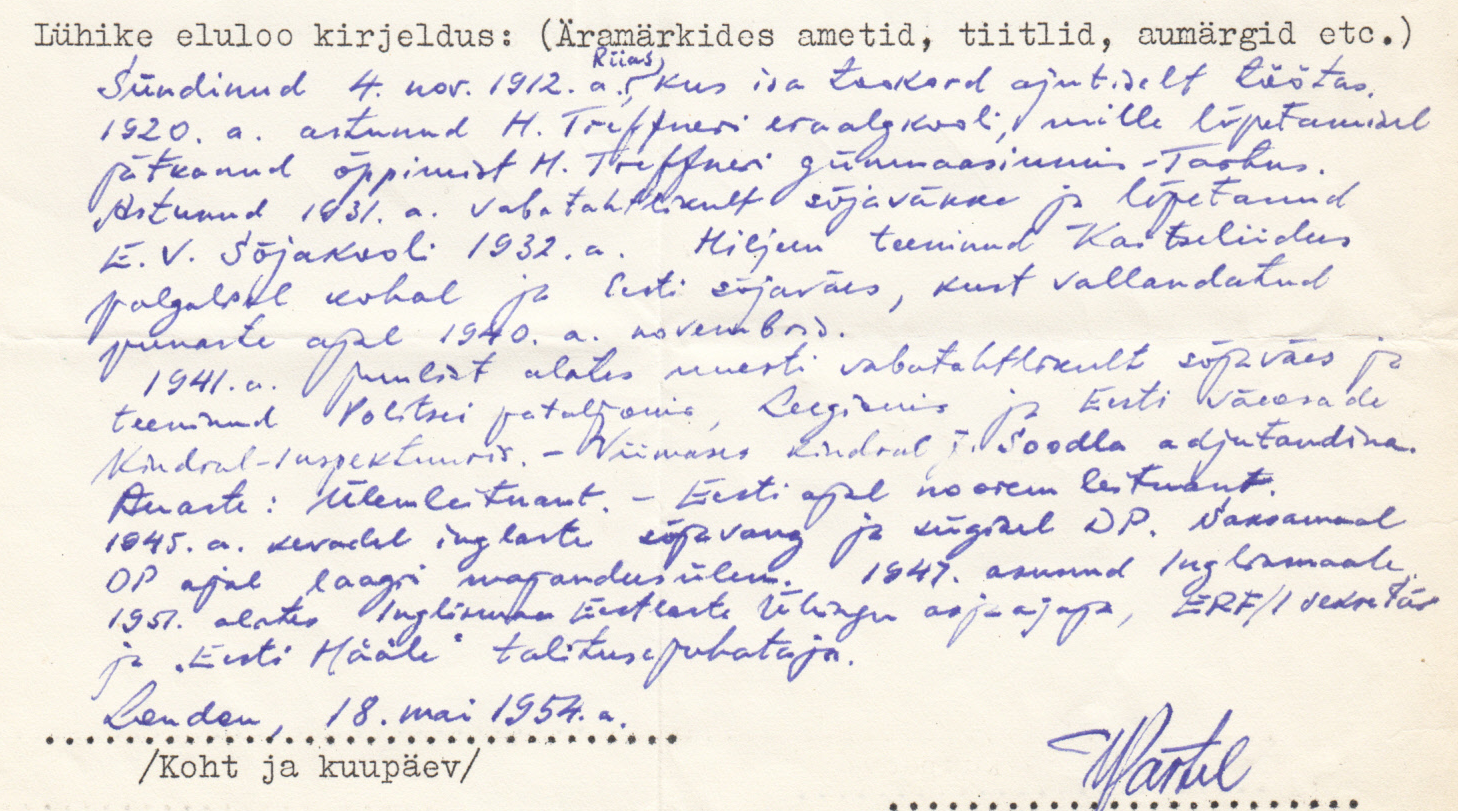 Lühike eluloo kirjeldus: (Äramärkides ametid, tiitlid, aumärgid etc.)
Riias,
Sündinud 4. nov. 1912. a. kus isa toekord ajutiselt töötas.
1920. a. astunud H. Treffneri eraalgkooli, mille lõpetamisel
jätkanud õppimist H. Treffneri gümnaasiumis - Tartus.
Astunud 1931. a. vabatahtlikult sõjaväkke ja lõpetanud
E. V. Sõjakooli 1932. a. Hiljem teeninud Kaitseliidus
palgalisel kohal ja Eesti sõjaväes, kust vallandatud
punaste ajal 1940. a. novembris.
1941. a. juulist alates uuesti vabatahtlikult sõjaväes ja
teeninud Politsei pataljonis, Leegionis ja Eesti väeosade
Kindral-Inspektuuris. - Viimases kindral J. Soodla adjutandina.
Auaste: Ülemleitnant. - Eesti ajal noorem leitnant.
1945. a. kevadel inglaste sõjavang ja sügisel DP. Saksamaal
DP ajal laagri majandusülem. 1947. asunud Inglismaale.
1951. alates Inglismaa Eestlaste Ühingu asjaajaja, ERF/I sekretär
ja „Eesti Hääle" talitusejuhataja.
London, 18. mai 1954. a.
/Koht ja kuupäev/